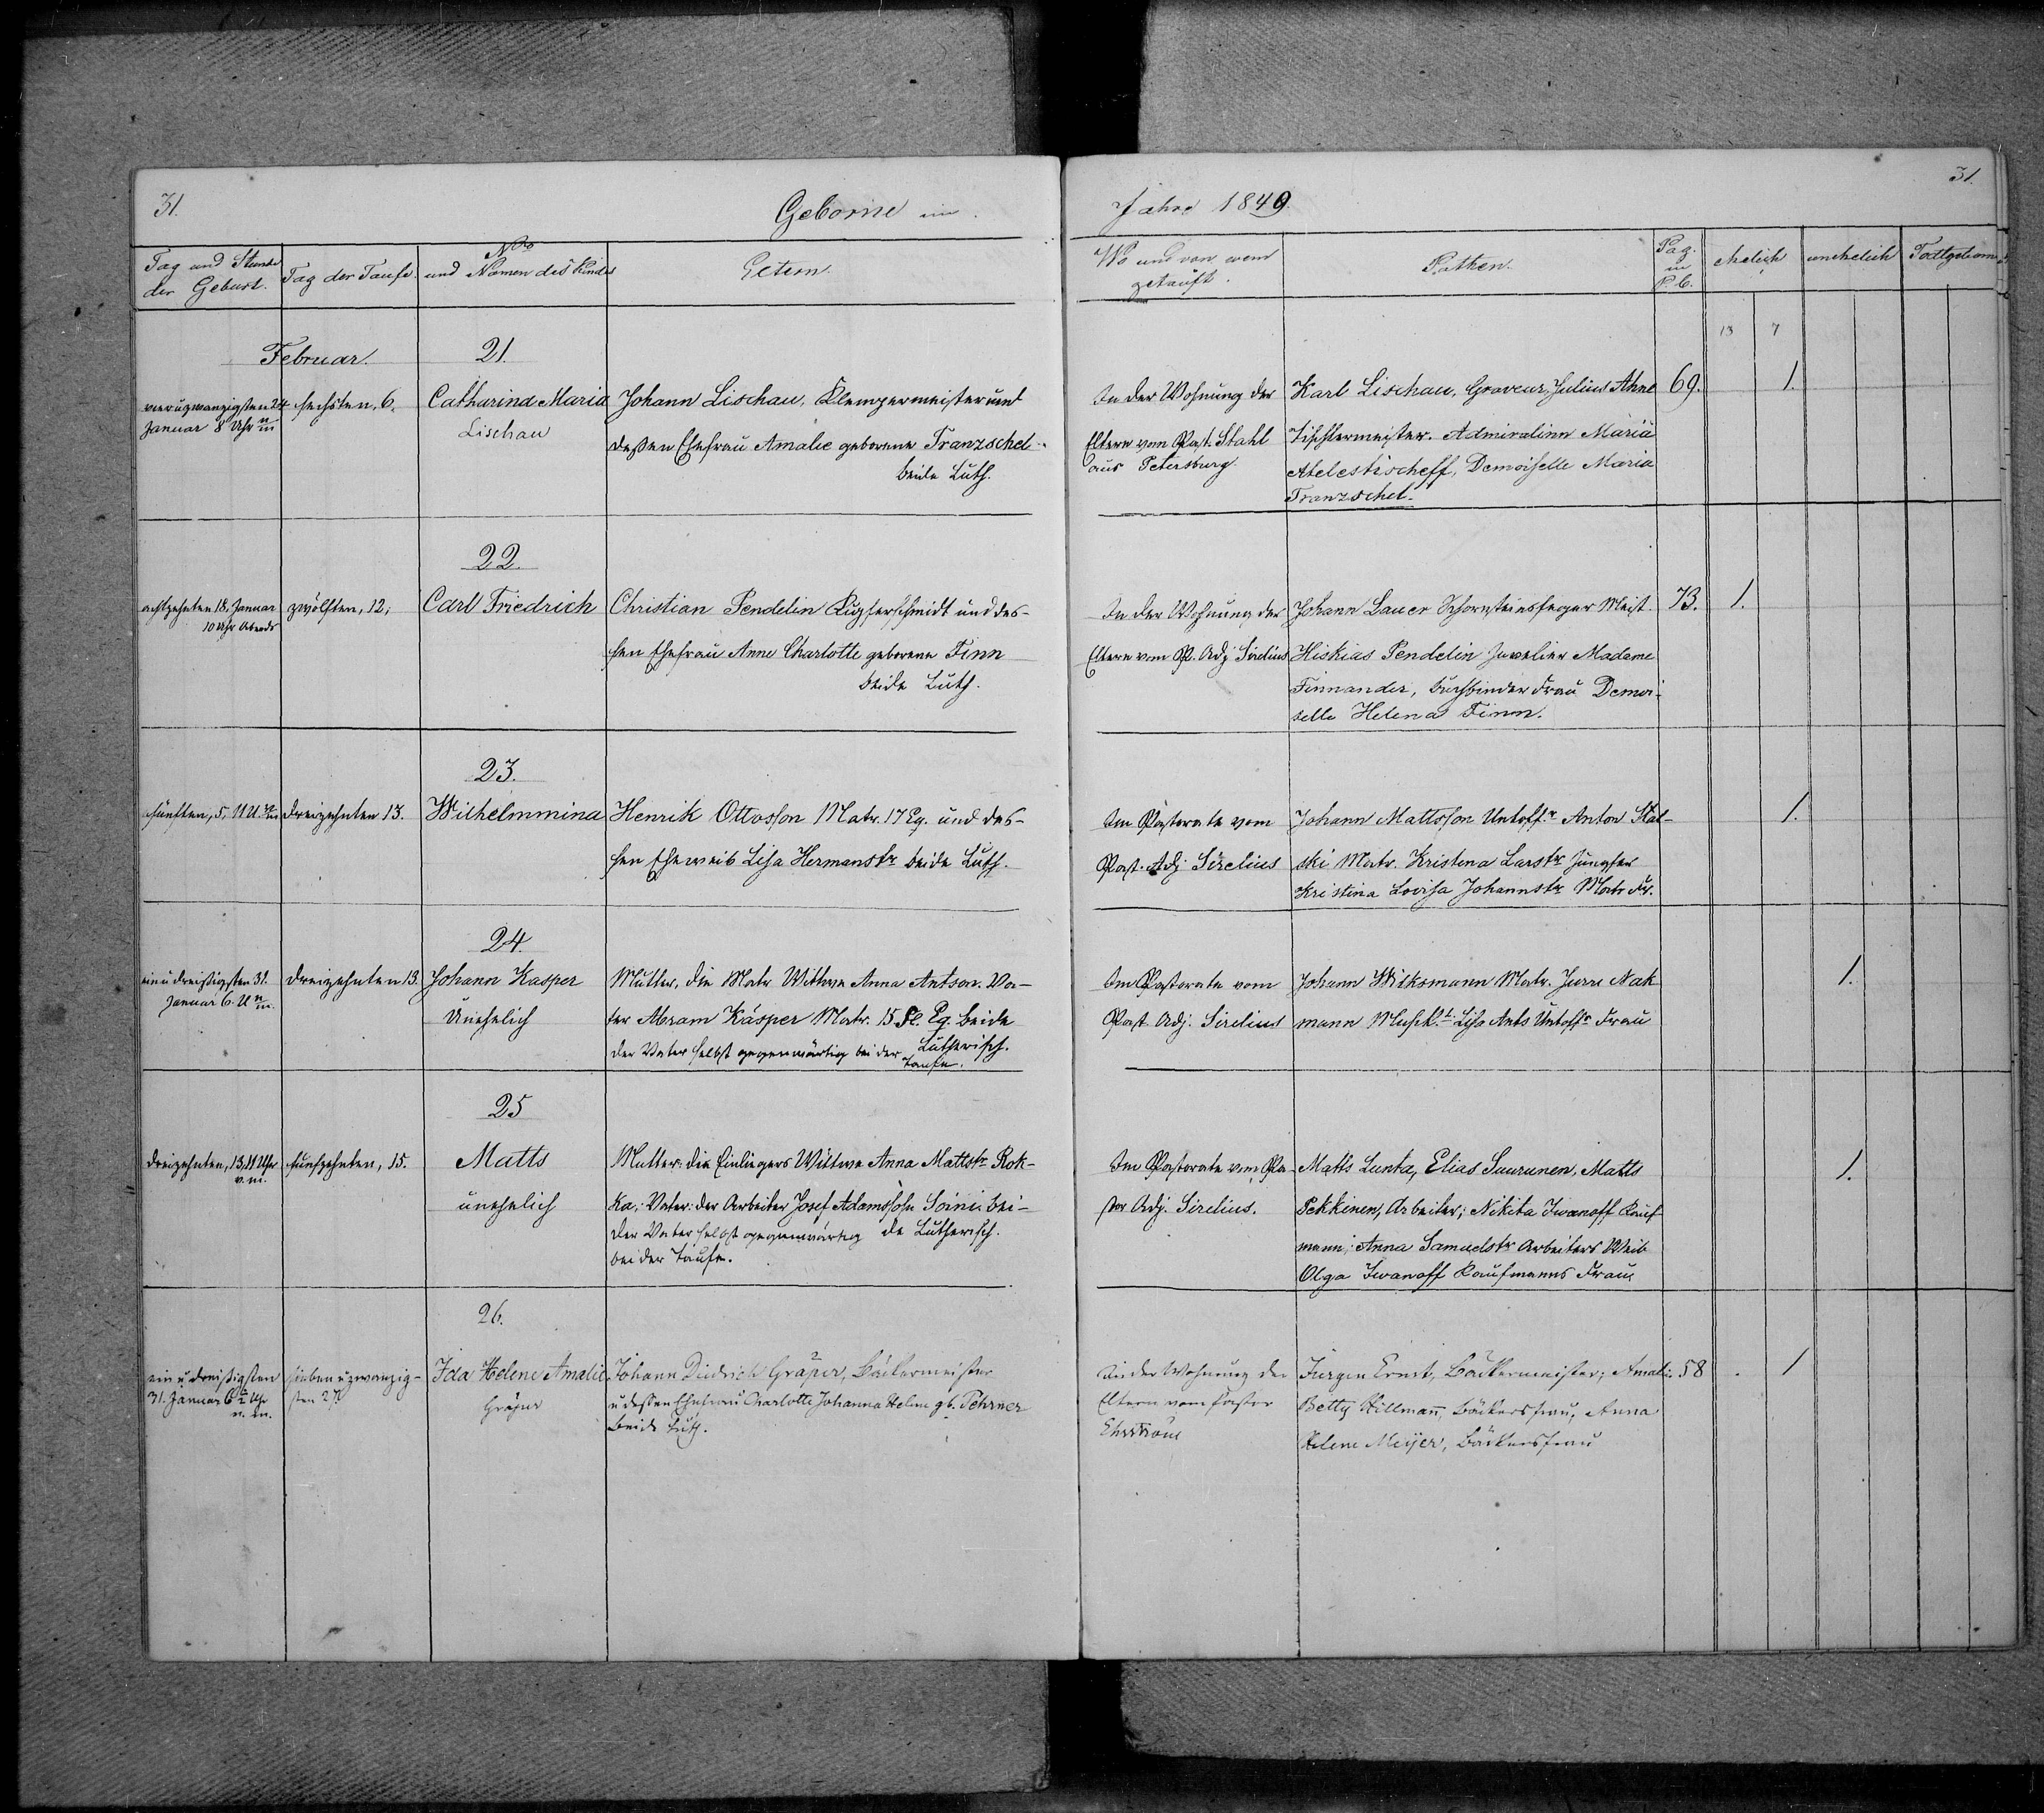 31.
Geborne im
Jahre 1849.
31.
Tag und Stunde der Geburt.
Tag der Taufe.
No und Namen des Kindes
Eltern.
Wo und von wem getauft.
Pathen.
Pag. in K.b.
ehelich
unehelich
Todtgeborne
13 7
Februar.
21.
vierundzwanzigsten 24
Januar 8 Uhr
sechsten, 6.
Catharina Maria
Lischau
Johann Lischau, Klempermeister und
dessen Ehefrau Amalie geborene Tranzschel
beide Luth.
In der Wohnung der
Eltern vom Past. Stahl
aus Petersburg.
Karl Lischau, Graveur, Julius Ahne
Tischlermeister. Admiralinn Maria
Atelestischeff, Demoiselle Maria
Tranzschel.
69.
1.
22.
achtzehnten 18. Januar
10 Uhr Abends
zwölften, 12,
Carl Friedrich
Christian Pendelin Kupferschmidt und des-
sen Ehefrau Anne Charlotte geborene Finn
beide Luth.
In der Wohnung der
Eltern vom P. Adj Sirelius
Johann Lauer Schornsteinsfeger Meist.
Hiskias Pendelin Juvelier Madame
Finnander, buchbinder Frau Demoi-
selle Helena Finn.
73.
1.
23.
fünften, 5, 11 U.
dreizehnten 13.
Wilhelmmina
Henrik Ottosson Matr. 17 Eq. und des-
sen Eheweib Lisa Hermanstr beide Luth.
Im Pastorate vom
Past. Adj Sirelius
Johann Mattsson Untoffr Anton Stal-
ski Matr. Kristina Larstr Jungfer
Kristina Lovisa Johannstr Matr Fr.
1.
24.
einudreissigsten 31.
Januar 6. U
dreizehnten 13.
Johann Kasper
Unehelich
Mutter, die Matr Wittwe Anna Antson. Va-
ter Abram Kasper Matr. 15 Fl. Eq. beide
Lutherisch.
der Vater selbst gegenwärtig bei der
Taufe.
Im Pastorate vom
Past Adj. Sirelius
Johann Wilksmann Matr. Jurre Nak
mann Musk.t Lisa Ants Untoffr Frau
1.
25
dreizehnten, 13, 11 Uhr
v. m.
fünfzehnten, 15.
Matts
unehelich
Mutter: die Einliegers Wittwe Anna Mattstr Rok-
ka; Vater: der Arbeiter Josef Adamssohn Soini bei-
de Lutherisch.
der Vater selbst gegenwärtig
bei der Taufe.
Im Pastorate vom Pa-
stor Adj. Sirelius.
Matts Lunta, Elias Suurunen, Matts
Pekkinen, Arbeiter; Nikita Iwanoff Kauf-
mann; Anna Samuelstr Arbeiters Weib
Olga Iwanoff Kaufmanns Frau
1.
26.
ein u dreissigsten
31. Januar 6 Uhr
sieben u zwanzig-
sten 27
Ida Helene Amalie
Gräper
Johann Diedrich Gräper, Bäckermeister
u dessen Ehefrau Charlotte Johanna Helm gb. Tehrner
beide Luth.
In der Wohnung der
Eltern vom Pastor
Ehrström
Jürgen Ernst, Bäckermeister; Amalie
Betty Hillmann, Bäckersfrau, Anna
Helene Meijer, Bäckersfrau
58
1